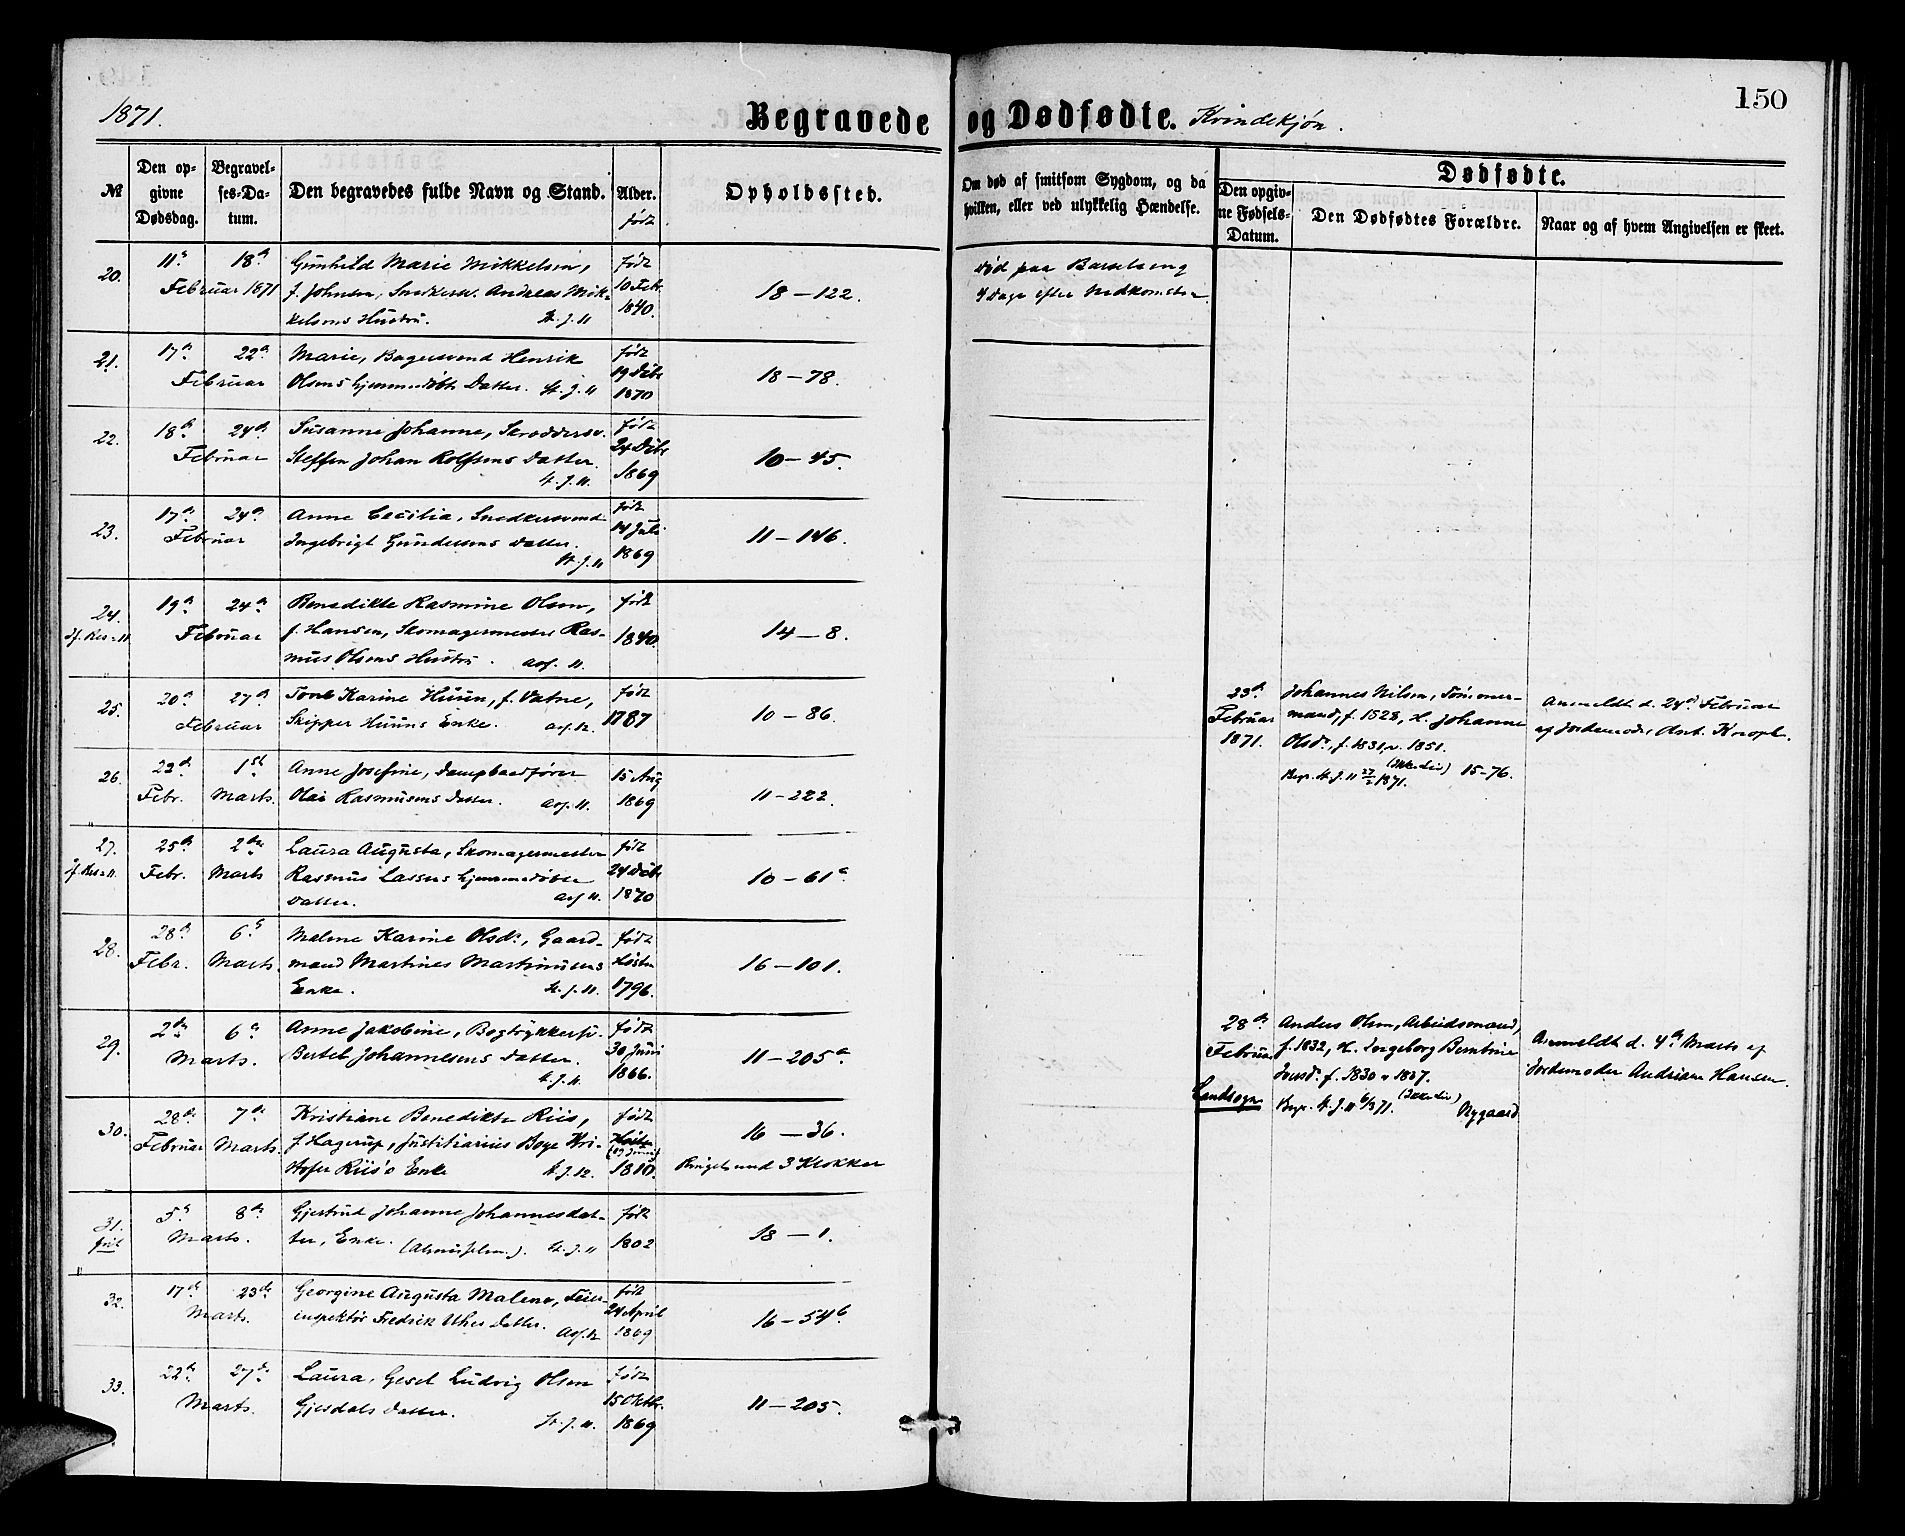 1871.
Begravede og Dødfødte. Kvindekjøn.
150
№
Den opgivne Dødsdag.
Begravelses-Datum.
Den begravedes fulde Navn og Stand.
Alder.
født
Opholdssted.
Om død af smitsom Sygdom, og da
hvilken, eller ved ulykkelig Hændelse.
Dødfødte.
Den opgivne Fødsels-Datum.
Den Dødfødtes Forældre.
Naar og af hvem Angivelsen er skeet.
20. 11te 18de Gunhild Marie Mikkelsen, født Død paa Barselseng
Februar 1871 f. Johnsen, Snedkersv. Andreas Mik- 10 Feb. 18–122. 4 Dage efter Nedkomsten
kelsens Hustru. St. J. 11 1840.
21. 17de 22de Marie, Bagersvend Henrik født
Februar Olsens hjemmedøbte Datter. St. J. 11 19 Dcbr 1870 18–78.
22. 18de 24de Susanne Johanne, Skræddersv. født
Februar Steffen Johan Rolfsens Datter. 24 Dcbr 10–45.
St. J. 11. 1869
23. 17de 24de Anne Cecilia, Snedkersvend født
Februar Ingebrigt Gundersens Datter. 14 Juli 11–146.
St. J. 11 1869
24. 19de 24de Benedikte Rasmine Olsen, født
Februar f. Hansen, Skomagermester Ras- 1840. 14–8.
mus Olsens Hustru.
25. 20de 27de Tone Karine Huun, f. Vatne, født
Februar Skipper Huuns Enke. 1787 10–86.
23de Februar 1871. Johannes Nilsen, Tømmer-
mand, f. 1828, H. Johanne
Olsdr, f. 1831, v. 1851.
Begr. St. J. 11 27/2 1871. 15–76.
Anmeldt d. 24de Februar
af Jordemoder Ant. Knoph.
26. 23de 1ste Anne Josefine, Dampbaadfører 15 Aug
Febr. Marts Olai Rasmusens Datter. 1869 11–222.
27. 25de 2den Laura Augusta, Skomagermester født
Febr. Marts Rasmus Lassens hjemmedøbte 24 Dcbr 10–61a.
Datter. 1870
28. 28de 6te Malene Karine Olsdr, Gaard- født
Febr. Marts. mand Martines Martinusens Høsten 16–101.
Enke. St. J. 11. 1796.
29. 2den 6te Anne Jakobine, Bogtrykkersv. født
Marts. Bertel Johannesens Datter. 30 Juni 11–205a.
St. J. 11. 1866.
28de Februar Landsogn Anders Olsen, Arbeidsmand,
f. 1832, H. Ingeborg Berntine
f. 1830 v 1857.
Begr. St. J. 11 6/3 71. Nygaard
Anmeldt d. 4de Marts af
Jordemoder Andriane Hansen.
30. 28de 7de Kristiane Benedikte Riis, født
Februar Marts. f. Hagerup, Justitiarius Boye Kri- 16–36.
stofer Riis's Enke St. J. 12. 1810. Ringet med 3 Klokker
31. frit 5te 8de Gjertrud Johanne Johannesdat- født
Marts. ter, Enke. St. J. 11 1802 18–1.
32. 17de 23de Georgine Augusta Malene, Feier- født
Marts. inspektør Fredrik Uthes Datter. 24 April 1869 16–54b.
33. 22de 27de Laura, Gesel Ludvig Olsen født
Marts. Gjesdals Datter. 15 Oktbr. 11–205.
St. J. 11. 1869